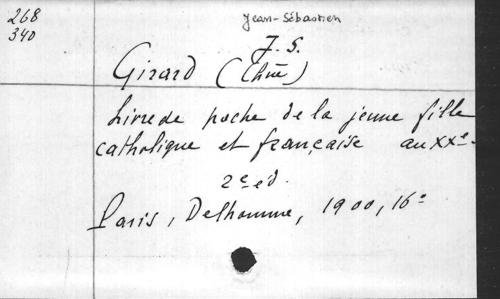 268
340
Jean-Sébastien
J. S.
Girard (Chne)
Livre de poche de la jeune fille
catholique et française au XXe
2e éd.
Paris, Delhomme, 1900, 16°